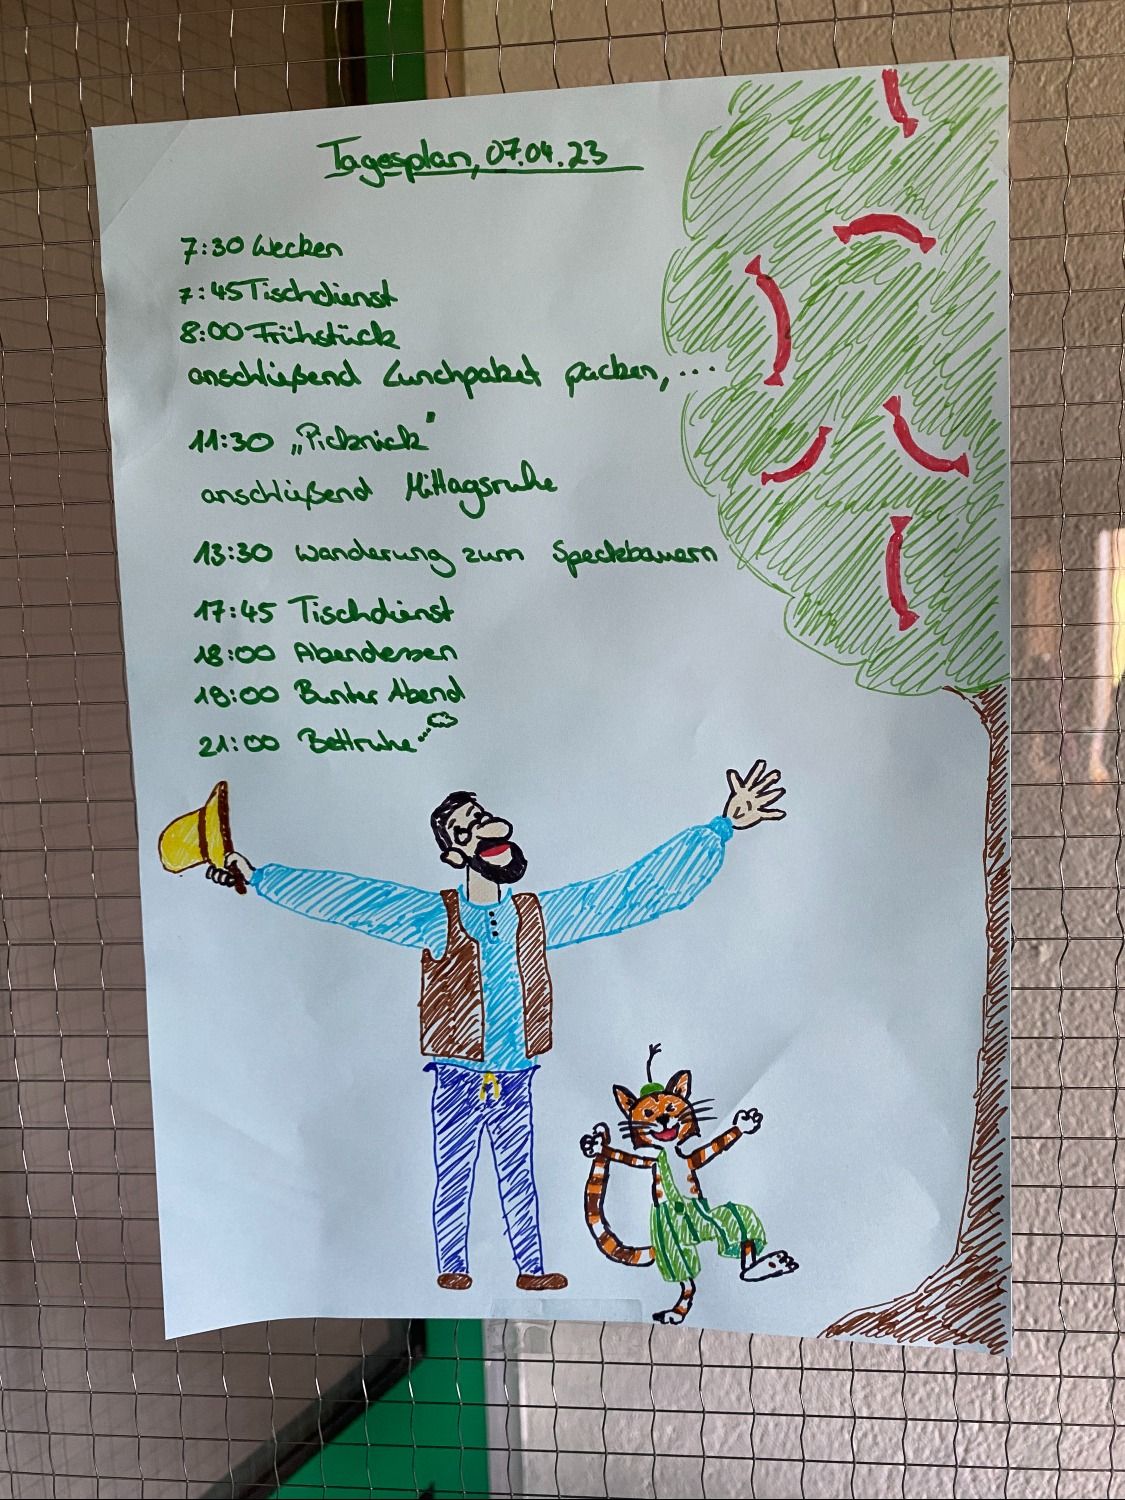 Tagesplan, 07.04.23
7:30 Wecken
7:45 Tischdienst
8:00 Frühstück
anschließend Lunchpaket packen, ...
11:30 „Picknick"
anschließend Mittagsruhe
13:30 Wanderung zum Speckbauern
17:45 Tischdienst
18:00 Abendessen
19:00 Bunter Abend
21:00 Bettruhe